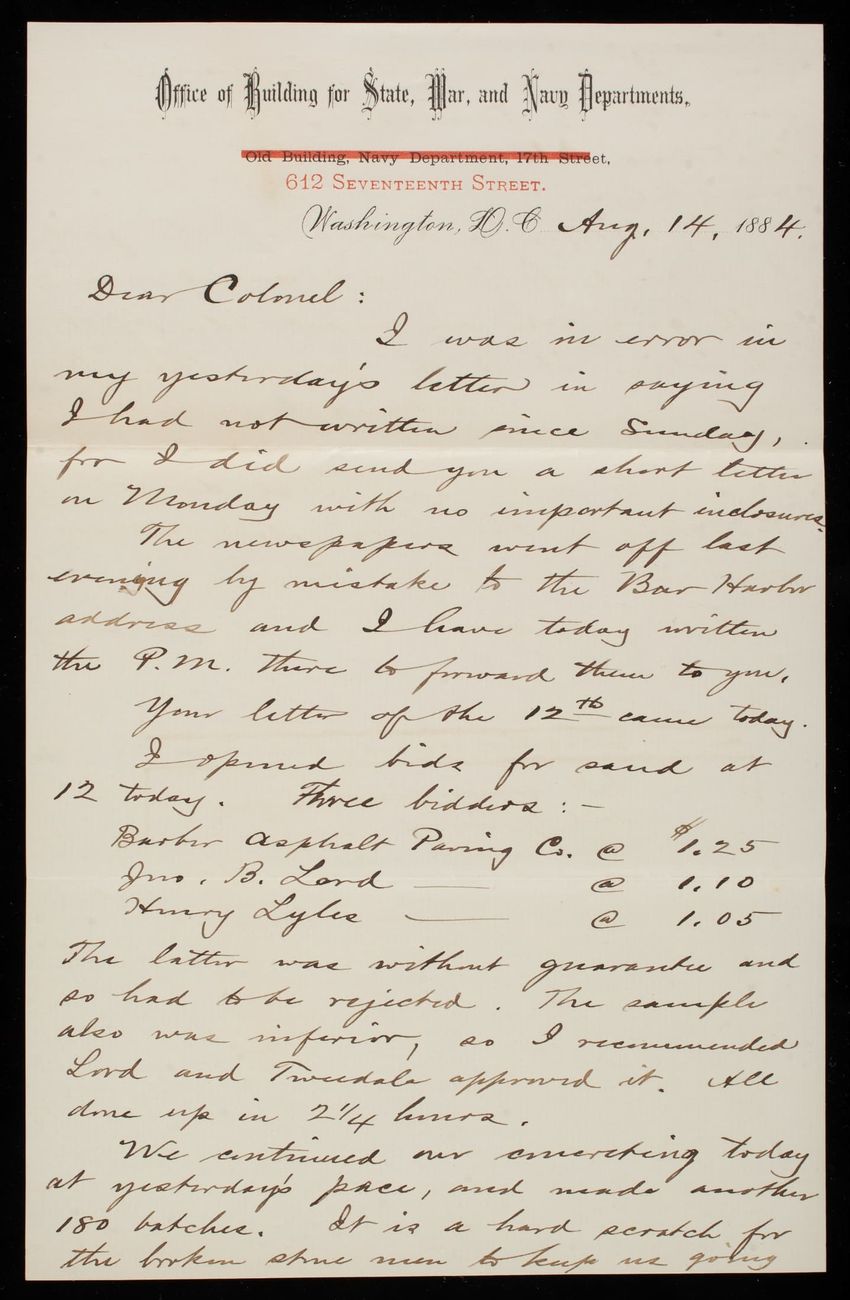 Office of Building for State, War, and Navy Departments,
Old Building, Navy Department, 17th Street,
612 Seventeenth Street.
Washington, D.C. Aug. 14, 1884.
Dear Colonel:
I was in error in
my yesterday's letter in saying
I had not written since Sunday,
for I did send you a short letter
on Monday with no important inclosures.
The newspapers went off last
evening by mistake to the Bar Harbor
address and I have today written
the P.M. there to forward them to you.
Your letter of the 12th came today.
I opened bids for sand at
12 today. Three bidders:—
Barber Asphalt Paving Co. @ $1.25
Jno. B. Lord — @ 1.10
Henry Lyles — @ 1.05
The latter was without guarantee and
so had to be rejected. The sample
also was inferior, so I recommended
Lord and Tweedale approved it. All
done up in 2 1/4 hours.
We continued our concreting today
at yesterday's pace, and made another
180 batches. It is a hard scratch for
the broken stone men to keep us going